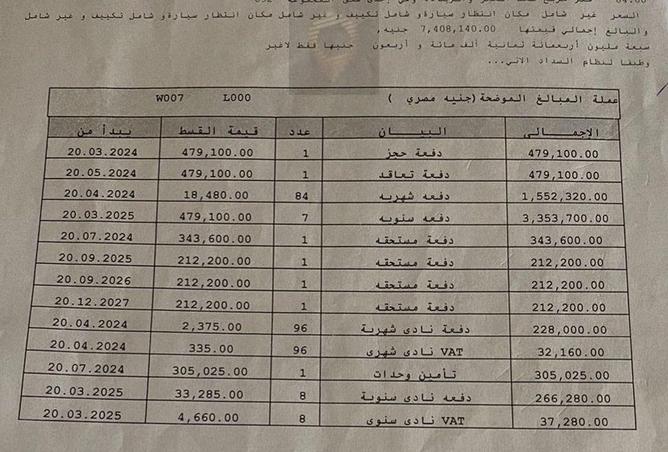 السعر غير شامل مكان انتظار سيارة و شامل تكييف و غير شامل مكان انتظار سيارة و شامل تكييف و غير شامل
والبالغ إجمالي قيمتها 7,408,140.00 جنيه,
سبعة مليون أربعمائة ثمانية ألف مائة و أربعون جنيها فقط لاغير
وطبقا لنظام السداد الاتي...
عملة المبالغ الموضحة (جنيه مصري ) L000 W007
الإجمالى البيـــان عدد قيمة القسط يبدأ من
479,100.00 دفعة حجز 1 479,100.00 20.03.2024
479,100.00 دفعة تعاقد 1 479,100.00 20.05.2024
1,552,320.00 دفعه شهريه 84 18,480.00 20.04.2024
3,353,700.00 دفعه سنويه 7 479,100.00 20.03.2025
343,600.00 دفعة مستحقه 1 343,600.00 20.07.2024
212,200.00 دفعة مستحقه 1 212,200.00 20.09.2025
212,200.00 دفعة مستحقه 1 212,200.00 20.09.2026
212,200.00 دفعة مستحقه 1 212,200.00 20.12.2027
228,000.00 دفعة نادى شهرية 96 2,375.00 20.04.2024
32,160.00 VAT نادى شهرى 96 335.00 20.04.2024
305,025.00 تأمين وحدات 1 305,025.00 20.07.2024
266,280.00 دفعه نادى سنوية 8 33,285.00 20.03.2025
37,280.00 VAT نادى سنوى 8 4,660.00 20.03.2025